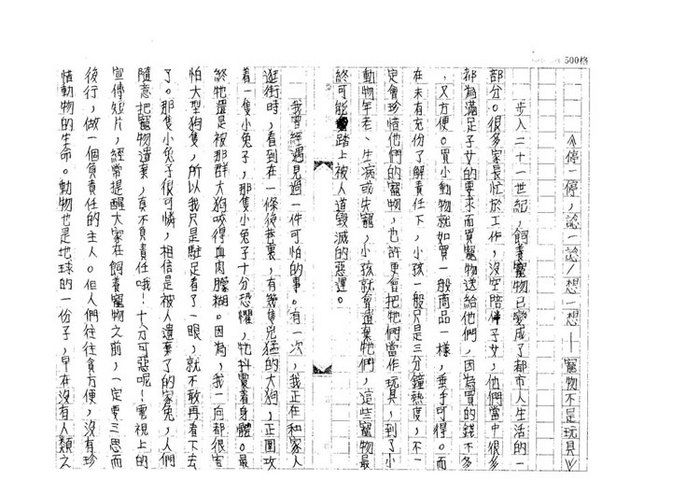 500格
《停一停，諗一諗/想一想——寵物不是玩具》
步入二十一世紀，飼養寵物已變成了都市人生活的一
部分。很多家長忙於工作，沒空陪伴子女，他們當中很多
都為滿足子女的要求而買寵物送給他們，因為買的錢不多
，又方便。買小動物就如買一般商品一樣，垂手可得。而
在未有充份了解責任下，小孩一般只是三分鐘熱度，不一
定會珍惜他們的寵物，也許更會把牠們當作玩具，到了小
動物年老、生病或失寵，小孩就會遺棄牠們，這些寵物最
終可能踏上被人道毀滅的惡運。
我曾經遇見過一件可怕的事。有一次，我正在和家人
逛街時，看到在一條後巷裏，有幾隻兇猛的大狗，正圍攻
着一隻小兔子，那隻小兔子十分恐懼，牠抖震着身體。最
終牠還是被那群大狗咬得血肉朦糊。因為，我一向都很害
怕大型狗隻，所以我只是駐足看了一眼，就不敢再看下去
了。那隻小兔子很可憐，相信是被人遺棄了的家兔，人們
隨意把寵物遺棄，真不負責任哦！十分可惡呢！電視上的
宣傳短片，經常提醒大家在飼養寵物之前，一定要三思而
後行，做一個負責任的主人。但人們往往貪方便，沒有珍
惜動物的生命。動物也是地球的一份子，早在沒有人類之